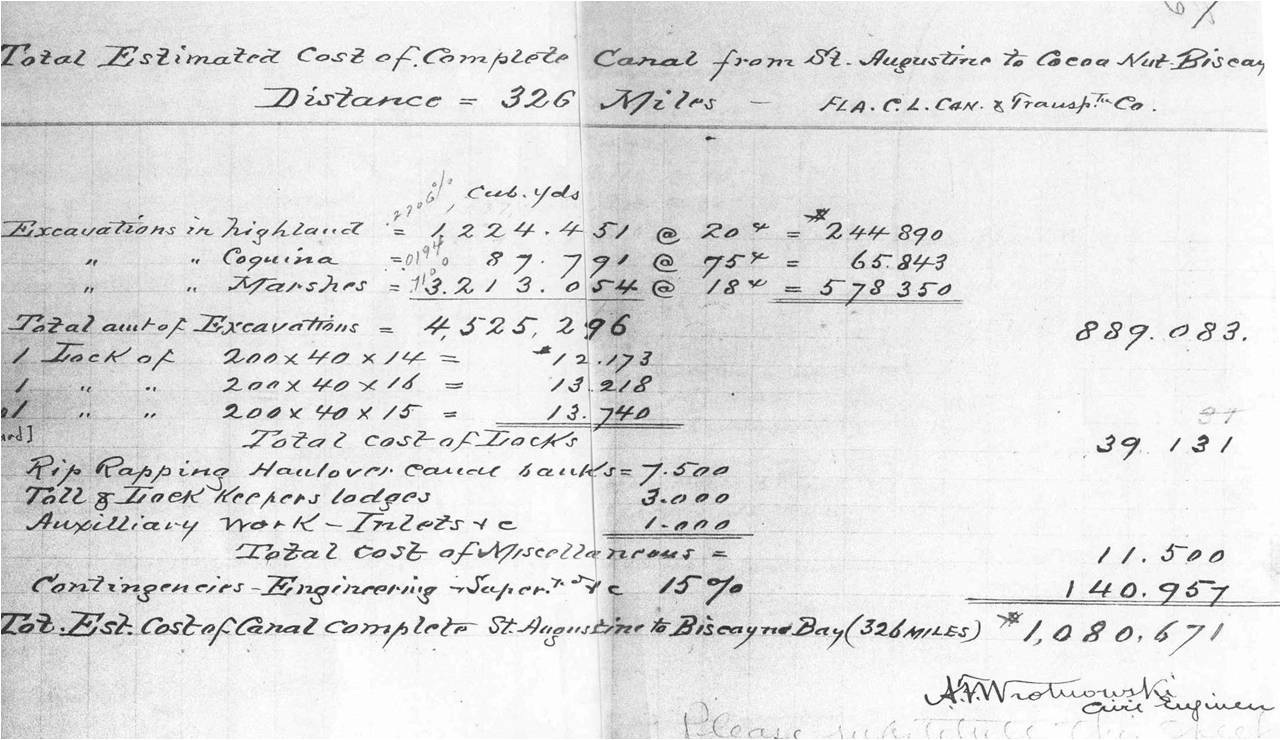 Total Estimated Cost of Complete Canal from St. Augustine to Cocoa Nut-Biscay
Distance = 326 Miles — FLA. C. L. CAN. & Transp.tn Co.
Cub. yds
Excavations in highland = .2706% 1.224.451 @ 20¢ = $244890
" " Coquina = .0194% 87.791 @ 75¢ = 65.843
" " Marshes = 3.213.054 @ 18¢ = 578350
Total amt of Excavations = 4,525,296 889.083.
1 Lock of 200x40x14 = $12.173
1 " " 200x40x16 = 13.218
1 " " 200x40x15 = 13.740
Total cost of Locks 39.131
Rip Rapping Haulover canal banks = 7.500
Toll & Lock Keepers lodges 3.000
Auxilliary Work – Inlets &c 1.000
Total cost of Miscellaneous = 11.500
Contingencies-Engineering 15% 140.957
Tot. Est. Cost of Canal complete St. Augustine to Biscayne Bay (326 MILES) $1,080,671
A.F. Wrotnowski
Civil Engineer
Please substitute this sheet